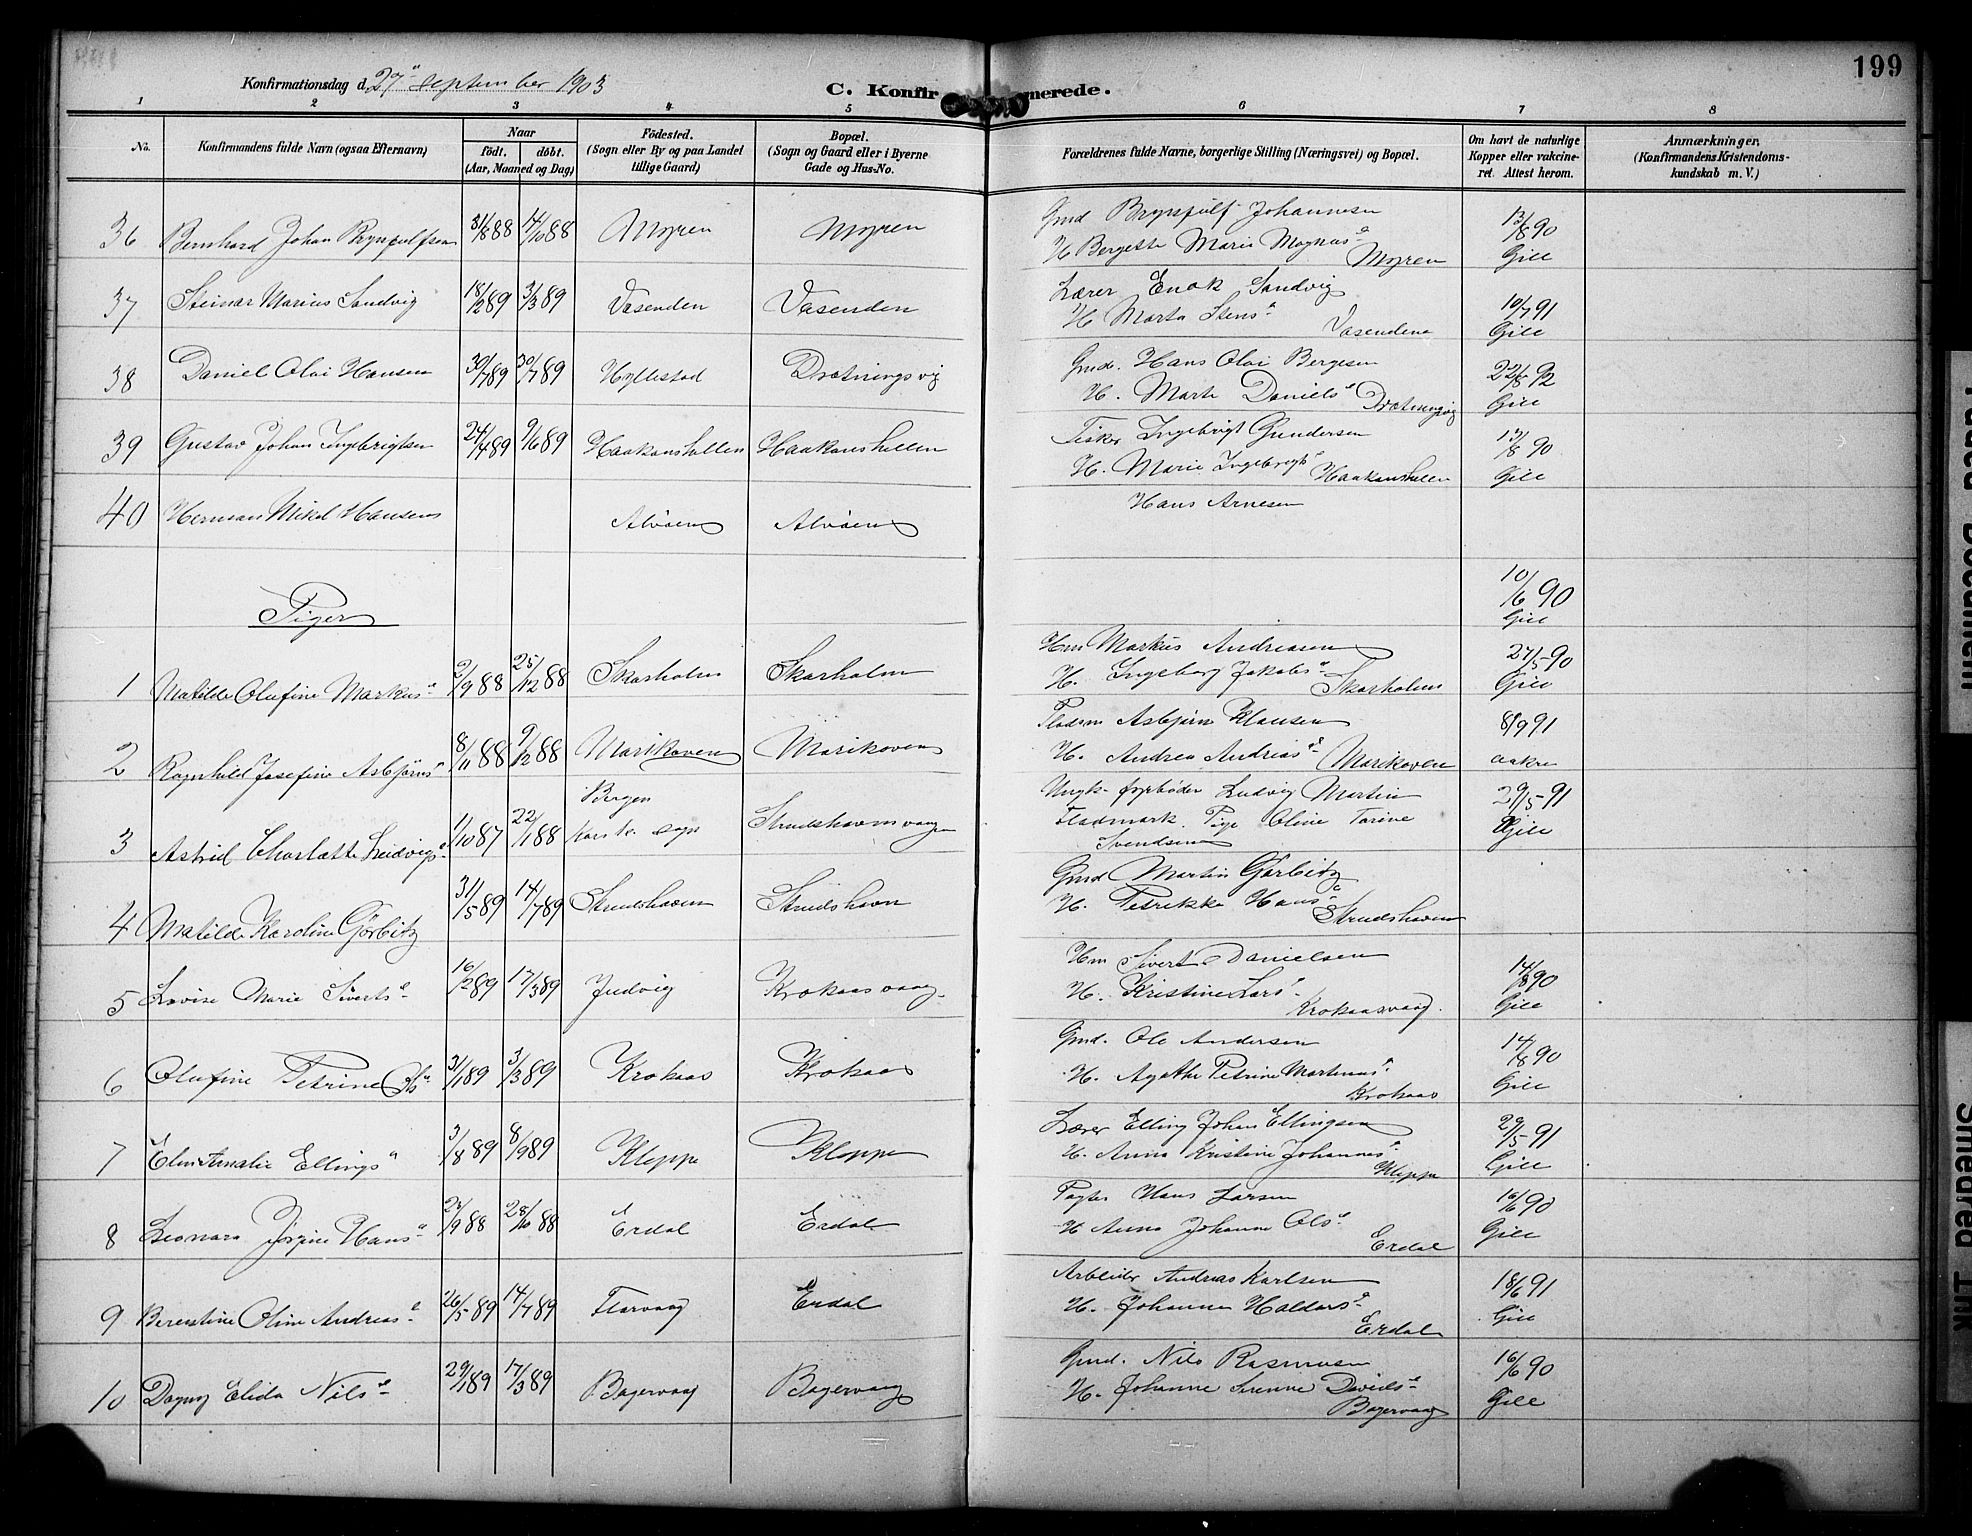 199
Konfirmationsdag d. 27 September 1903
C. Konfirmerede.
1 2 3 4 5 6 7 8
No.
Konfirmandens fulde Navn (ogsaa Efternavn)
Naar
födt. döbt.
(Aar, Maaned og Dag)
Födested.
(Sogn eller By og paa Landet
tillige Gaard)
Bopæl.
(Sogn og Gaard eller i Byerne
Gade og Hus-No.
Forældrenes fulde Navne, borgerlige Stilling (Næringsvei) og Bopæl.
Om havt de naturlige
Kopper eller vakcine-
ret. Attest herom.
Anmærkninger.
(Konfirmandens Kristendoms-
kundskab m. V.)
36 Bernhard Johan Brynjulfsen 31/8 88 14/10 88 Myren Myren
Gmd Brynjulf Johannesen
H Bergette Marie Magnus
Myren
13/8 90
Gill
37 Steinar Marius Sandvig 18/2 89 3/3 89 Vasenden Vasenden
Lærer Enok Sandvig
H Marta Stens
Vasendene
10/7 91
Gill
38 Daniel Olai Hansen 30/7 89 Hyllestad Drotningsvig
Gmd. Hans Olai Bergesen
H. Marte Daniels Drotningsvig
22/8 92
Gill
39 Gustav Johan Ingebrigtsen 24/4 89 9/6 89 Haakonshellen Haakonshellen
Fisker Ingebrigt Gundersen
H. Marie Ingebrigts Haakonshellen
13/8 90
Gill
40 Herman Mikal Hansen Alvøen Alvøen
Hans Arnesen
10/6 90
Gill
Piger
1 Matilde Olufine Markus 2/9 88 25/12 88 Skarholm Skarholm
Hm Markus Andreasen
H. Ingeborg Jakobs Skarholmen
27/5 90
Gill
2 Ragnhild Josefine Asbjørns 8/11 88 9/12 88 Marikoven Marikoven
Pladsm Asbjørn Klausen
H. Andrea Andreas Marikoven
8/9 91
Aakre
3 Astrid Charlotte Ludvigs 1/10 87 22/1 88
Bergen
Korsk. sogn
Strudshavnsvaagen
Ungk. fyrbøder Ludvig Martin
Fladmark. Pige Oline Tarine
Svendsen
29/5 91
Gill
4 Matilde Karoline Görbitz 31/5 89 14/7 89 Strudshavn Strudshavn
Gmd Martin Görbitz
H. Petrikke Hans
Strudshavn
5 Lovise Marie Siverts 16/2 89 17/3 89 Judvig Krokaasvaag
Hm Sivert Danielsen
H. Kristine Lars
Krokaasvaag.
14/8 90
Gill
6 Olufine Petrine Ols 31/1 89 3/3 89 Krokaas Krokaas
Gmd. Ole Andersen
H. Agathe Petrine Martinus
Krokaas
14/8 90
Gill
7 Elen Amalie Ellings 3/8 89 8/9 89 Kleppe Kleppe
Lærer Elling Johan Ellingsen
H. Anna Kristine Johannes
Kleppe
29/5 91
Gill
8 Leonara Jørgine Hans 28/10 88 Erdal Erdal
Pagter Hans Larsen
H Anna Johanne Ols
Erdal
16/6 90
Gill
9 Berentine Oline Andreas 26/5 89 14/7 89 Florvaag Erdal
Arbeider Andreas Karlsen
H. Johanne Haldors
Erdal
18/6 91
Gill
10 Dagny Elida Nils 29/1 89 17/3 89 Bagervaag Bagervaag
Gmd. Nils Rasmusen
H. Johanne Serine Davids
Bagervaag
16/6 90
Gill
Faded Document
Smeared Ink